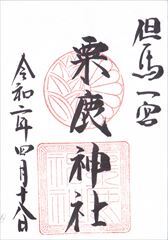 但馬一宮
粟鹿神社
令和二年四月十八日